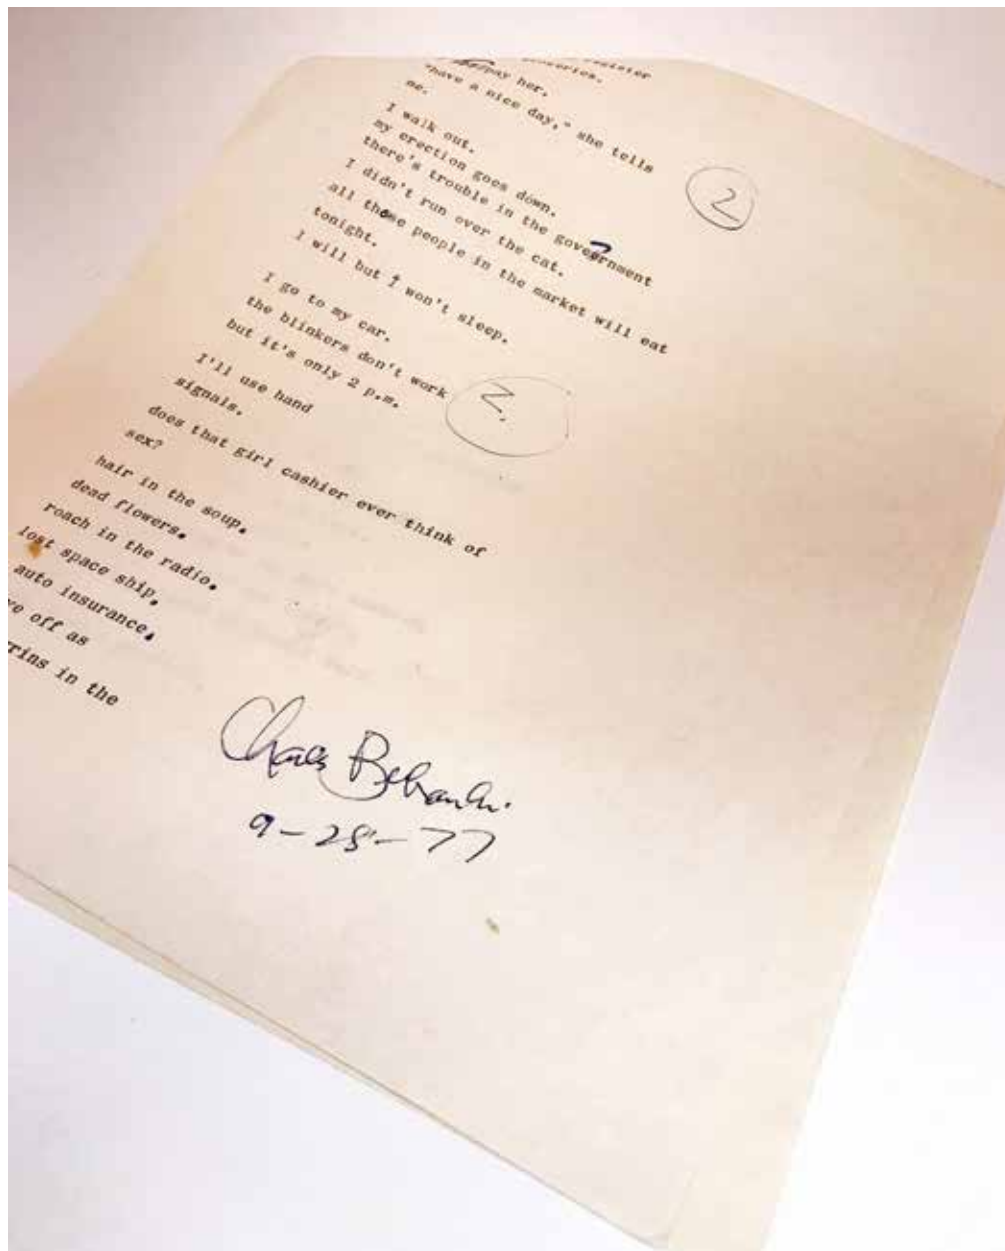 pay her.
"have a nice day," she tells
me.
I walk out.
my erection goes down.
there's trouble in the government
I didn't run over the cat.
all these people in the market will eat
tonight.
I will but I won't sleep.
2
I go to my car.
the blinkers don't work
but it's only 2 p.m.
I'll use hand
signals.
2.
does that girl cashier ever think of
sex?
hair in the soup.
dead flowers.
roach in the radio.
lost space ship.
auto insurance.
off as
in the
Charles Bukowski
9-28-77